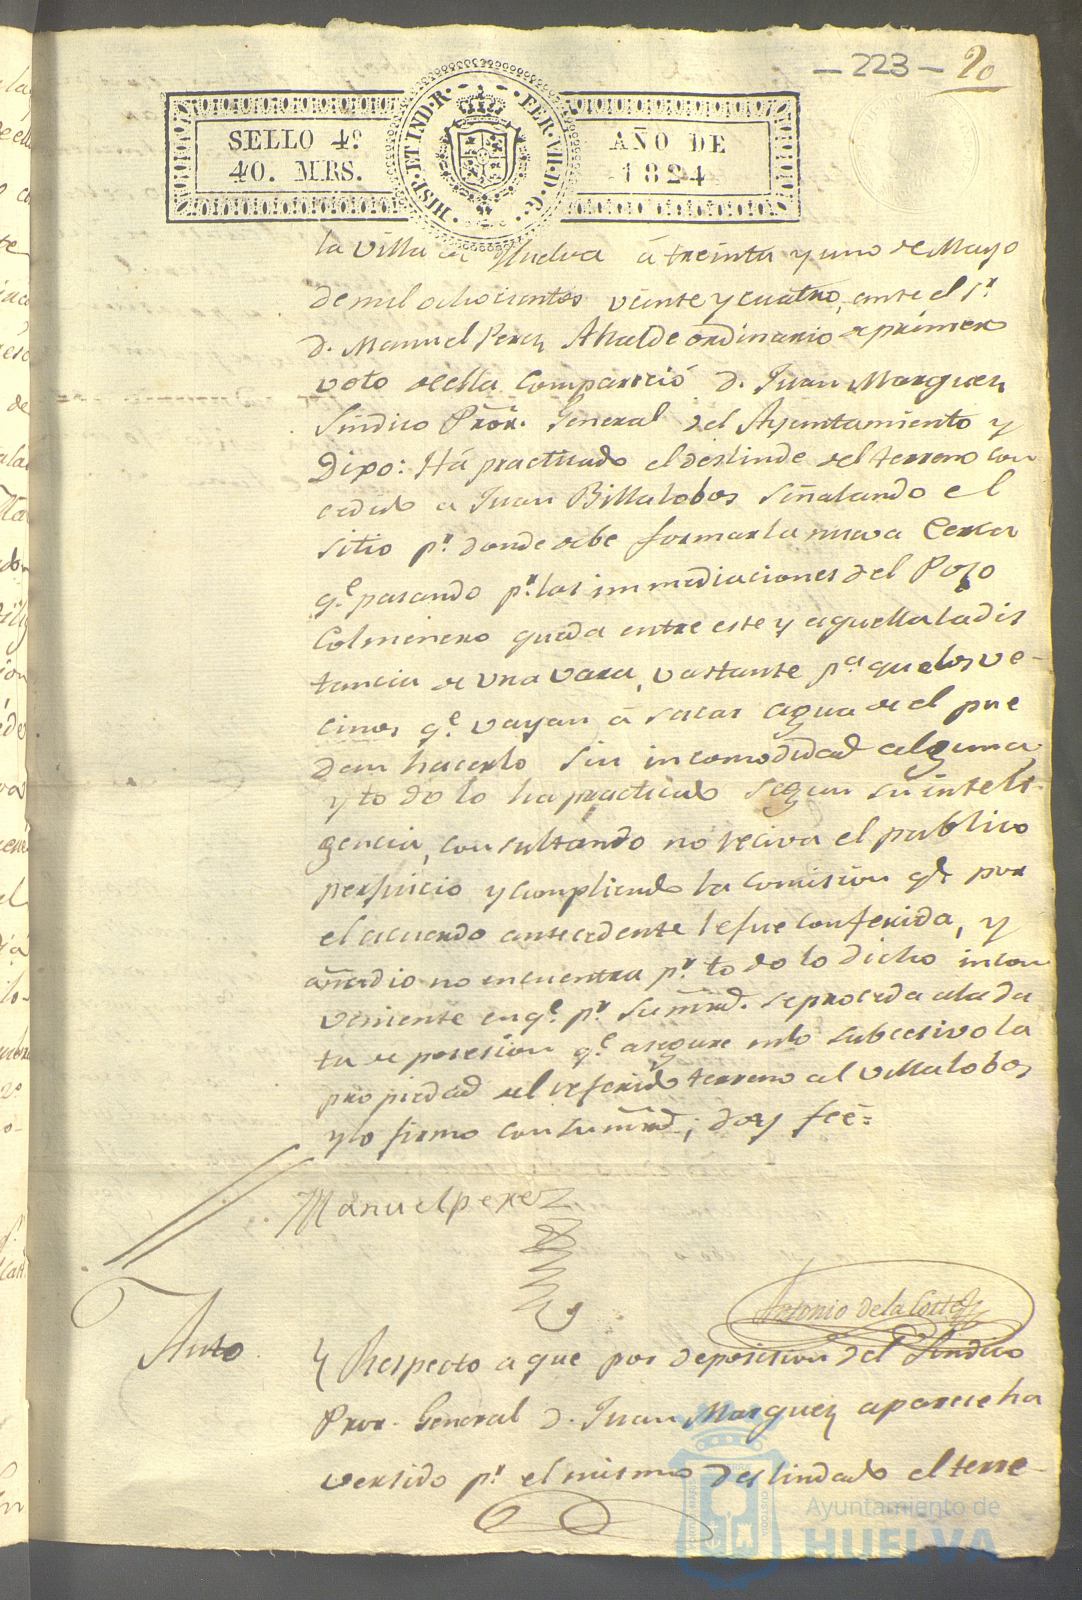 - 223 - 20
SELLO 4º
40. MRS.
HISP. ET IND. R. FER. VII. D. G.
AÑO DE
1824
la villa de Huelva á treinta y uno de Mayo
de mil ochocientos veinte y cuatro, ante el Sr.
D. Manuel Perez Alcalde ordinario de primer
voto de ella compareció D. Juan Marquez
Sindico Pror. General del Ayuntamiento y
Dixo: Há practicado el deslinde del terreno con
cedido a Juan Billalobos señalando el
sitio pr. donde debe formar la nueva Cerca
q.e pasando pr. las immediaciones del Pozo
Colmenero queda entre este y aquella la dis
tancia de una vara, vastante pa. que los ve-
cinos q.e vayan á sacar agua de el pue
dan hacerlo sin incomodidad alguna
y todo lo ha practicado segun su inteli-
gencia, consultando no reciva el publico
perjuicio y cumpliendo la comision qe. por
el acuerdo antecedente le fue conferida, y
añadio no encuentra pr. todo lo dicho incon
veniente en q.e pr. su mrd. se proceda a la da
ta de posesion q.e asegure en lo subcesivo la
propiedad del referido terreno al Villalobos
y lo firmo con su mrd; doy feé=
Manuel perez
Antonio de la Corte
Auto
Respecto a que por deposicion del Sindico
Pror. General D. Juan Marquez aparece ha
versido pr. el mismo deslindado el terre-
Ayuntamiento de
HUELVA